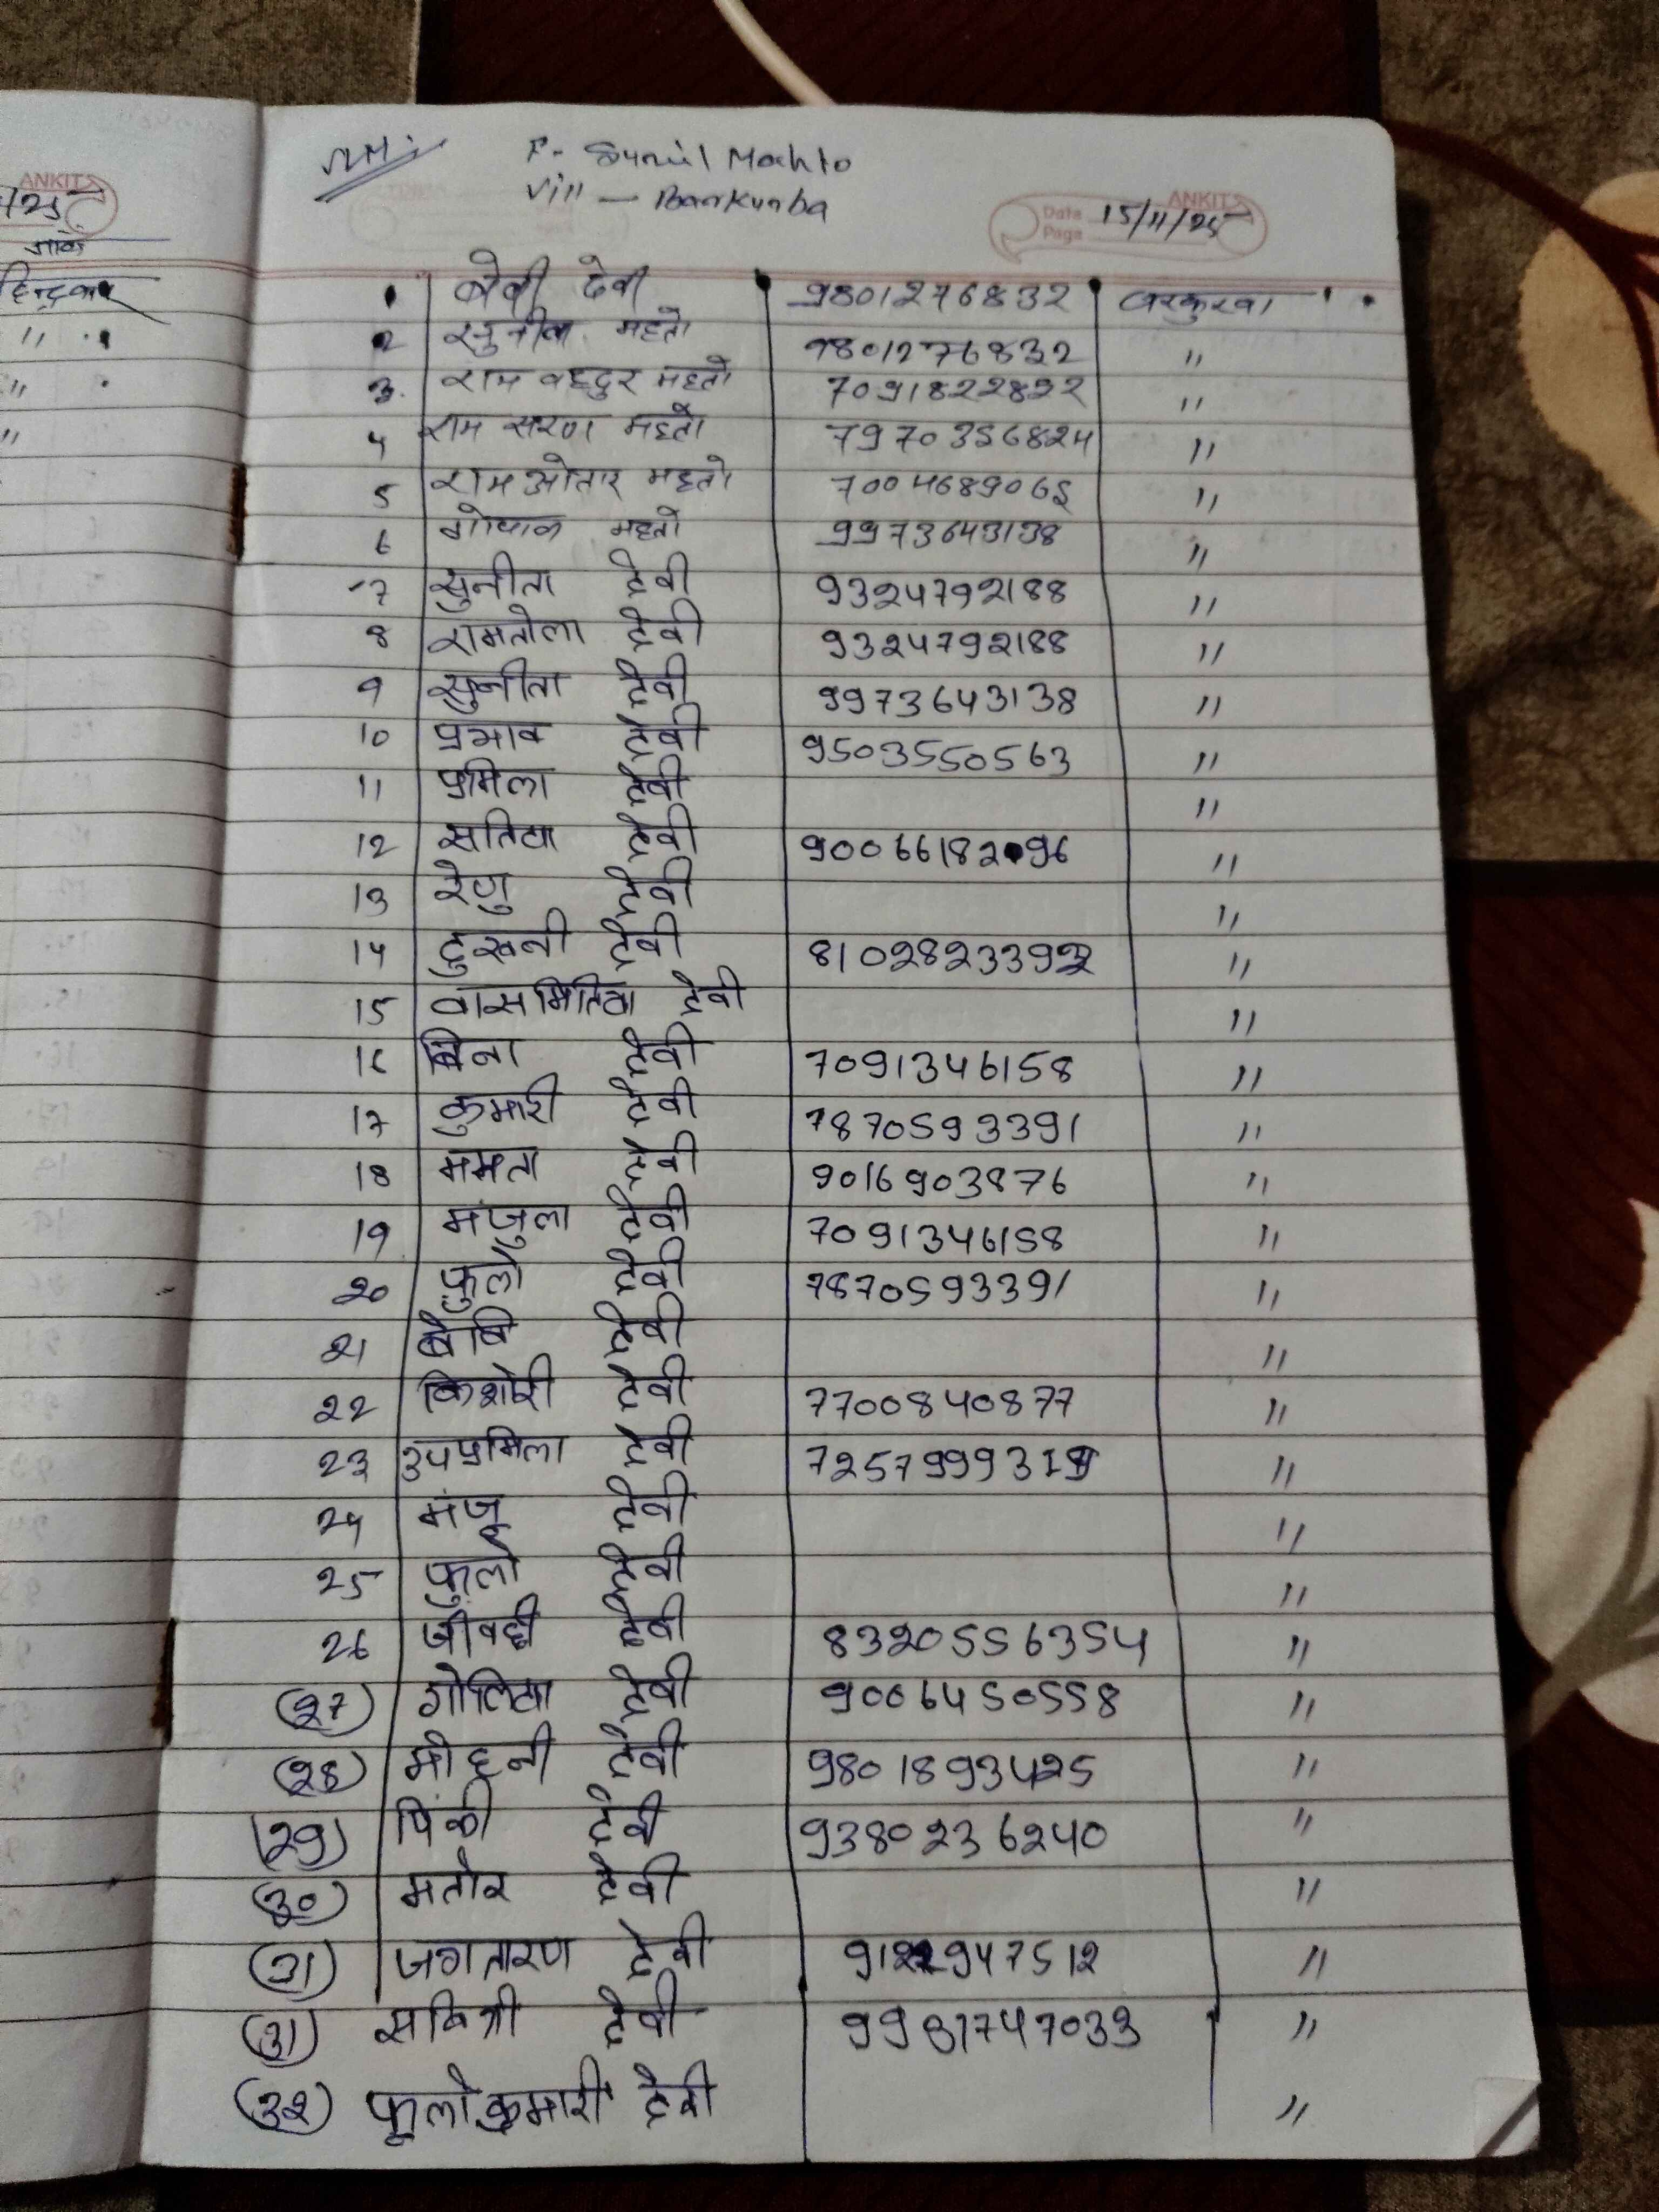 ANKIT
/25
हिन्द्रवार
"
"
"
P- Sunil Mahto
Vill - Barkunba
ANKIT
Date
Page
15/11/25
1 बेबी देवी 9801276832 बरकुरवा
2 सुनील महतो 9801276832 "
3. राम बहदुर महतो 7091822822 "
4 राम सरण महतो 7970356824 "
5 राम ओतार महतो 7004689065 "
6 गोपाल महतो 9973643138 "
7 सुनीता देवी 9324792188 "
8 रामतोला देवी 9324792188 "
9 सुनीता देवी 9973643138 "
10 प्रभाव देवी 9503550563 "
11 प्रमिला देवी "
12 सतिया देवी 9006618296 "
13 रेणु देवी "
14 दुखनी देवी 8102823392 "
15 वासमितिया देवी "
16 बिना देवी 7091346158 "
17 कुमारी देवी 7870593391 "
18 ममता देवी 9016903876 "
19 मंजुला देवी 7091346158 "
20 फुलो देवी 7870593391 "
21 बैबि देवी "
22 किशोरी देवी 7700840877 "
23 उपप्रमिला देवी "
24 मंजू देवी "
25 फुलो देवी "
26 जीवही देवी 8320556354 "
(27) गोलिया देवी 9006450558 "
(28) मोहनी देवी 9801893425 "
(29) पिंकी देवी 9380236240 "
(30) मतोर देवी "
(31) जगतारण देवी 9122947512 "
(31) सवित्री देवी 9931747033 "
(32) फूलो कुमारी देवी "